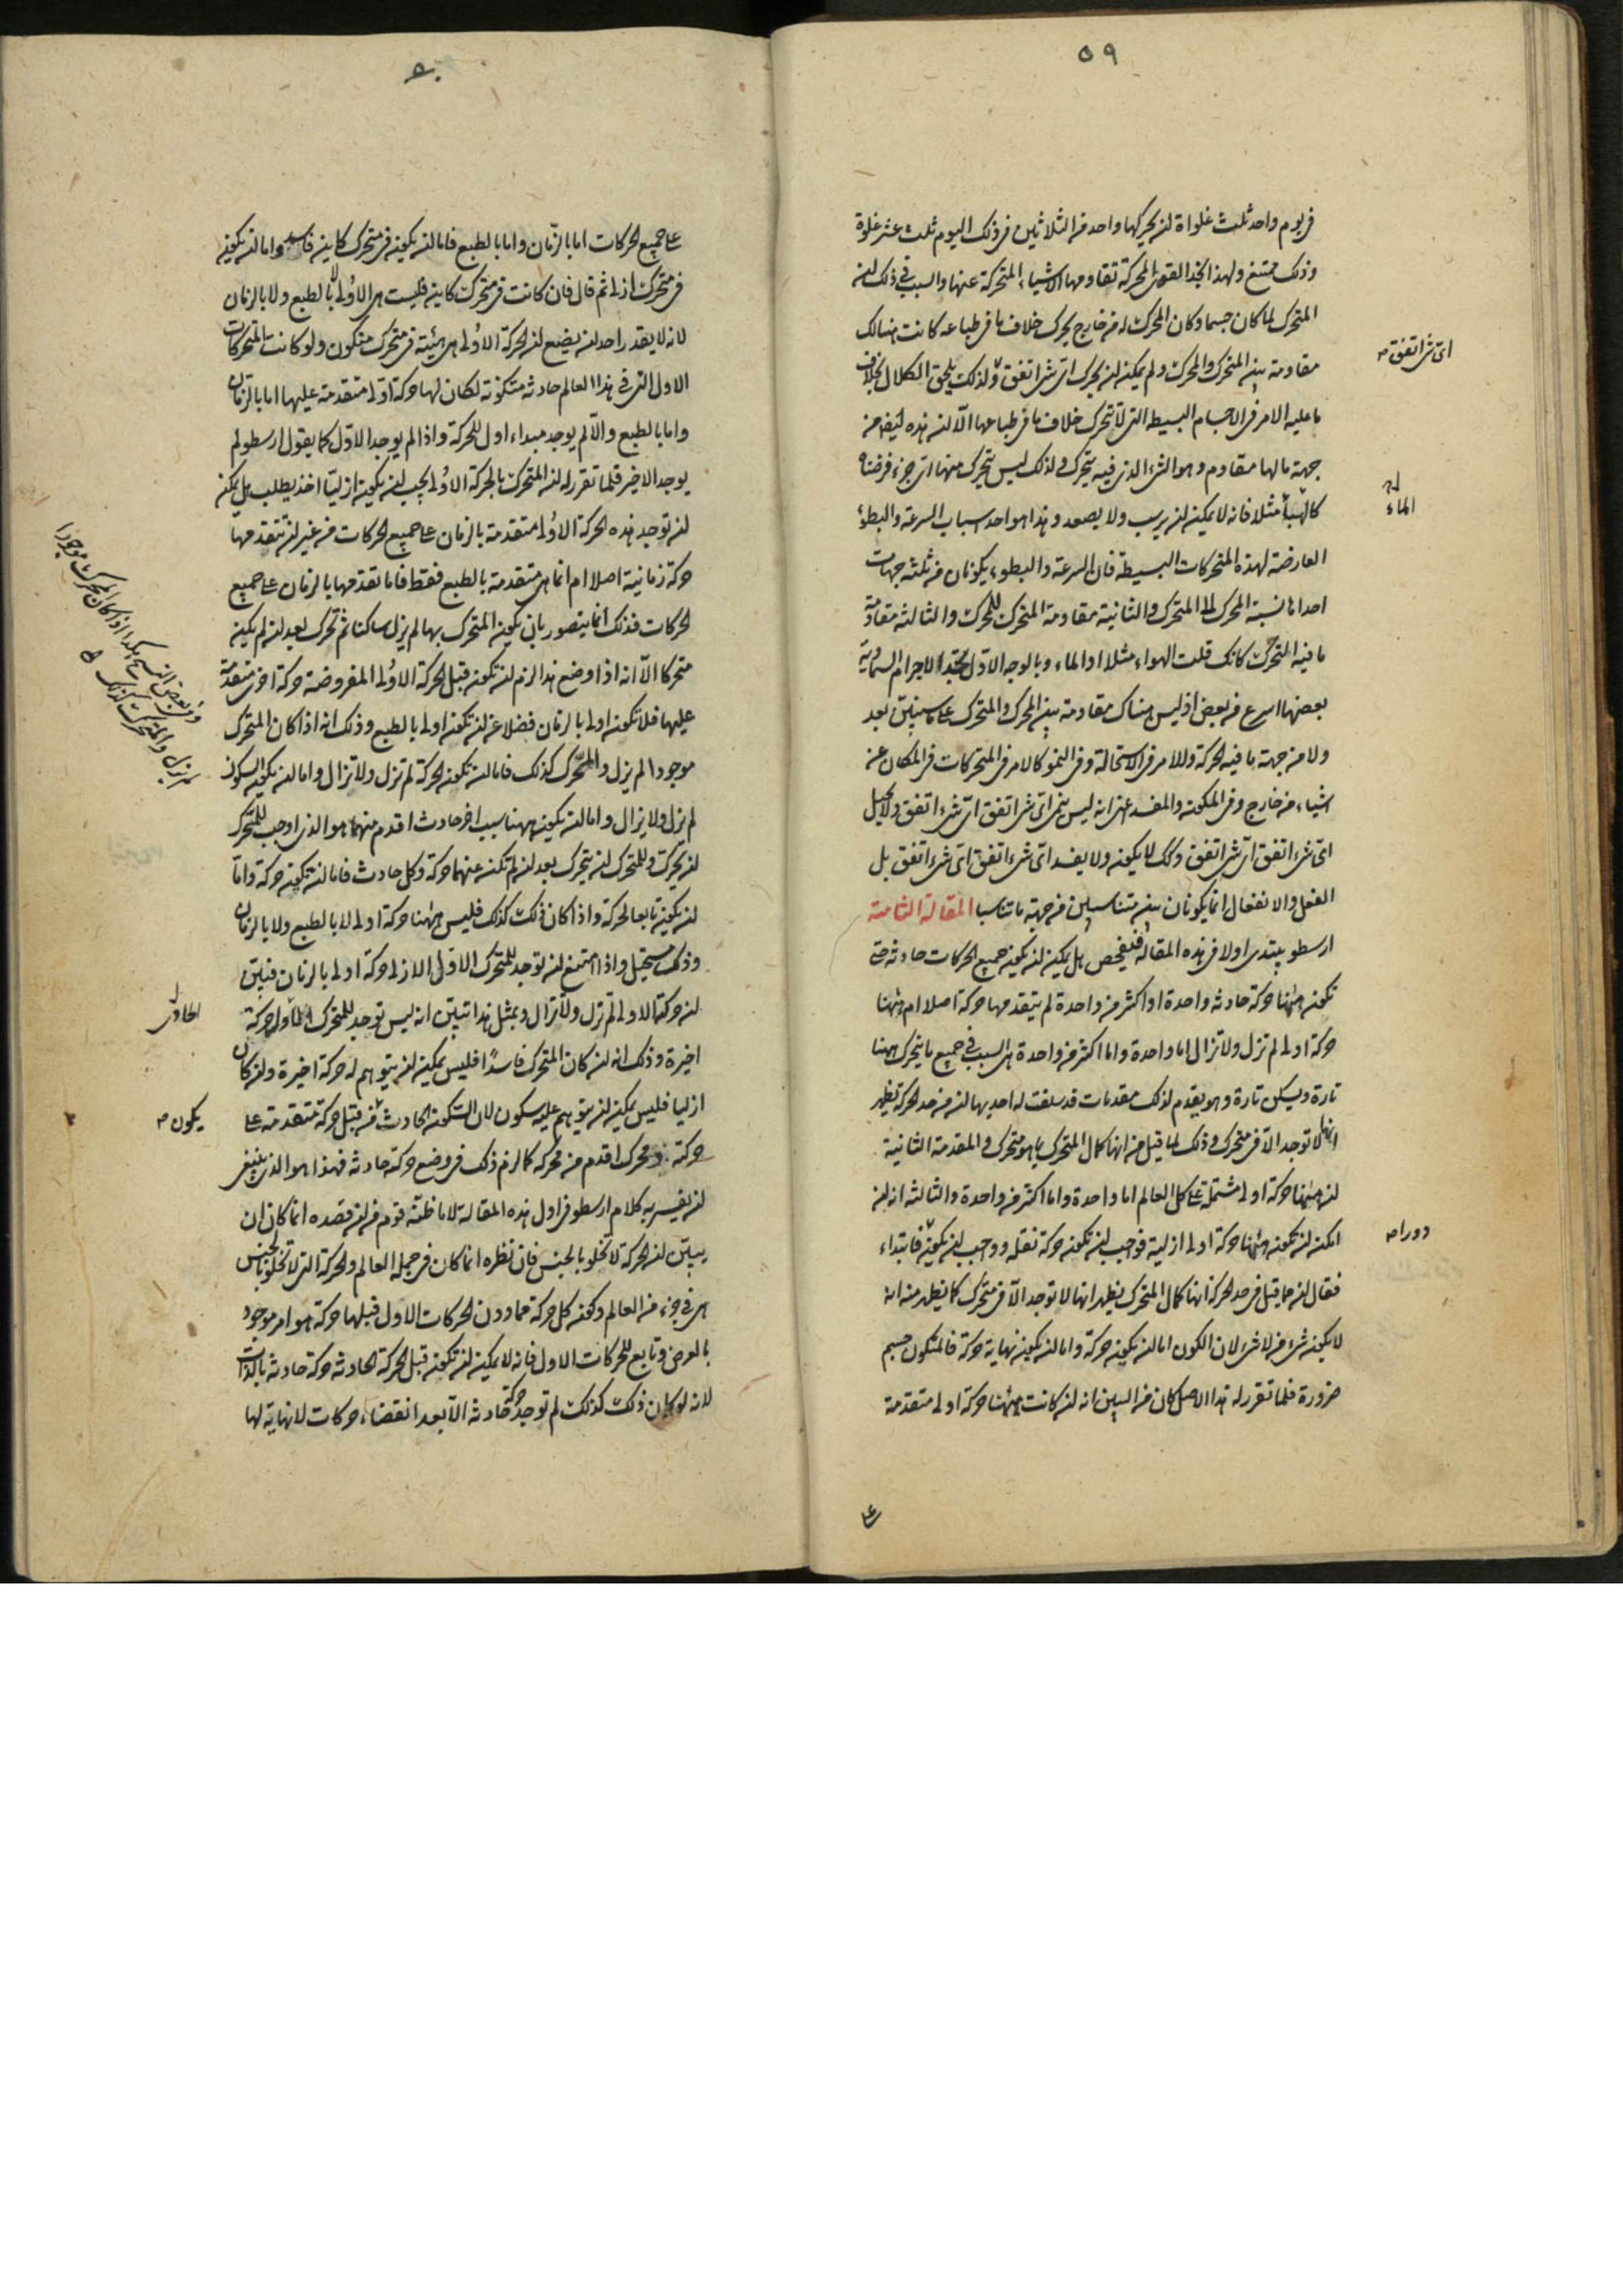 ٥٩
فى يوم واحد ثلث غلوات لنه يحركها واحد من الثلاثين فى ذلك اليوم ثلث عشر غلوة
وذلك ممتنع ولهذا نجد القوى المحركة تقاومها الاشياء المتحركة عنها والسبب فى ذلك لنه
المتحرك لما كان جسما وكان المحرك له من خارج يحرك خلاف ما فى طباعه كانت هنالك
مقاومة بين المتحرك والمحرك ولم يمكنه لنه يحرك اى شئ اتفق ولذلك يلحق الكلال بخلاف
اى شئ اتفق صح
ما عليه الامر فى الاجسام البسيطة التى لا تتحرك خلاف ما فى طباعها الا لنه هذه ايضا من
جهة ما لها مقاوم وهو الشئ الذى فيه يتحرك ولذلك ليس يتحرك منها اى جزء فرضناه
كالهباء مثلا فانه لا يمكن لنه يرسب ولا يصعد وهذا هو احد اسباب السرعة والبطوء
الماء
العارضة لهذه المتحركات البسيطة فان السرعة والبطوء يكونان من ثلثة جهات
احداها نسبة المحرك الى المتحرك والثانية مقاومة المتحرك للمحرك والثالثة مقاومة
ما فيه المتحرك كانك قلت الهواء مثلا او الماء وبالوجه الاول نجد الاجرام السماوية
بعضها اسرع من بعض اذ ليس هناك مقاومة بين المحرك والمتحرك على ما سيبين بعد
ولا من جهة ما فيه الحركة وللامر فى الاستحالة وفى النمو كالامر فى المتحركات فى المكان عن
اشياء من خارج وفى المكون والمفسد اعنى انه ليس ينمى اى شئ اتفق اى شئ اتفق ولا يحيل
اى شئ اتفق اى شئ اتفق وكك لا يكون ولا يفسد اى شئ اتفق اى شئ اتفق بل
الفعل والانفعال انما يكونان بين متناسبين من جهة ما تناسبا المقالة الثامنة
ارسطو يبتدى اولا فى هذه المقالة فيفحص هل يمكن لنه يكون جميع الحركات حادثة حتى
تكون ههنا حركة حادثة واحدة او اكثر من واحدة لم يتقدمها حركة اصلا ام ههنا
حركة اولى لم تزل ولا تزال اما واحدة واما اكثر من واحدة هى السبب فى جميع ما يتحرك ههنا
تارة ويسكن تارة وهو يقدم لذلك مقدمات قد سلفت له احديها لنه من حد الحركة يظهر
انها لا توجد الا فى متحرك وذلك لما قيل من انها كمال المتحرك بما هو متحرك والمقدمة الثانية
لنه ههنا حركة اولى مشتملة على كل العالم اما واحدة واما اكثر من واحدة والثالثة انه لنه
امكن لنه تكون ههنا حركة اولى ازلية فواجب لنه تكون حركة نقلة وواجب لنه يكون فابتداء
دورا صح
فقال لنه ما قيل فى حد الحركة انها كمال المتحرك يظهر انها لا توجد الا فى متحرك كما يظهر منه انه
لا يكون شئ من لا شئ لان الكون اما لنه يكون حركة واما لنه يكون نهاية حركة فالمتكون جسم
ضرورة فلما تقرر له هذا الاصل كان من البين انه لنه كانت ههنا حركة اولى متقدمة
على
على جميع الحركات اما بالزمان واما بالطبع فاما لنه يكون فى متحرك كاين فاسد واما لنه يكون
فى متحرك ازلى ثم قال فان كانت فى متحرك كاين فليست هى الاولى لا بالطبع ولا بالزمان
لانه لا يقدر احد لنه يضع لنه الحركة الاولى هى هيئة فى متحرك متكون ولو كانت المتحركات
الاول التى فى هذا العالم حادثة متكونة لكان لها حركة اولى متقدمة عليها اما بالزمان
واما بالطبع والا لم يوجد مبداء اول للحركة واذا لم يوجد الاول كما يقول ارسطو لم
يوجد الاخير فلما تقرر له لنه المتحرك بالحركة الاولى يجب لنه يكون ازليا اخذ يطلب هل يمكن
لنه توجد هذه الحركة الاولى متقدمة بالزمان على جميع الحركات من غير لنه تتقدمها
حركة زمانية اصلا ام انما هى متقدمة بالطبع فقط فاما تقدمها بالزمان على جميع
الحركات فذلك انما يتصور بان يكون المتحرك بها لم يزل ساكنا ثم تحرك بعد لنه لم يكن
متحركا الا انه اذا وضع هذا لزم لنه تكون قبل الحركة الاولى المفروضة حركة اخرى متقدمة
عليها فلا تكون اولى بالزمان فضلا عن لنه تكون اولى بالطبع وذلك انه اذا كان المتحرك
موجودا لم يزل والمحرك كذلك فاما لنه تكون الحركة لم تزل ولا تزال واما لنه يكون السكون
وفى بعض النسخ هكذا اذا كان المحرك موجودا
لم يزل والمتحرك كذلك
لم يزل ولا يزال واما لنه يكون ههنا سبب اخر حادث اقدم منهما هو الذى اوجب للمتحرك
لنه يحرك وللمتحرك لنه يتحرك بعد لنه لم تكن عنهما حركة وكل حادث فاما لنه تكون حركة واما
لنه يكون تابعا لحركة واذا كان ذلك كذلك فليس ههنا حركة اولى لا بالطبع ولا بالزمان
وذلك مستحيل واذا امتنع لنه توجد للمتحرك الاول الازلى حركة اولى بالزمان فبين
لنه حركته الاولى لم تزل ولا تزال وبمثل هذا تبين انه ليس توجد للمتحرك الاول حركة
الحاوى
اخيرة وذلك انه لنه كان المتحرك فاسدا فليس يمكن لنه يتوهم له حركة اخيرة ولنه كان
ازليا فليس يمكن لنه يتوهم عليه سكون لان السكون الحادث من قبل حركة متقدمة على
يكون صح
حركة ومحرك اقدم من محركه كما لزم ذلك فى وضع حركة حادثة فهذا هو الذى ينبغى
لنه يفسر به كلام ارسطو فى اول هذه المقالة لا ما ظنه قوم من لنه قصده انما كان ان
يبين لنه الحركة لا تخلو بالجنس فان نظره انما كان فى جملة العالم والحركة التى لا تخلو بالجنس
هى فى جزء من العالم وكون كل حركة مما دون الحركات الاول قبلها حركة هو امر موجود
بالعرض وتابع للحركات الاول فانه لا يمكن لنه تكون قبل الحركة الحادثة حركة حادثة بالذات
لانه لو كان ذلك كذلك لم توجد حركة حادثة الا بعد انقضاء حركات لا نهاية لها